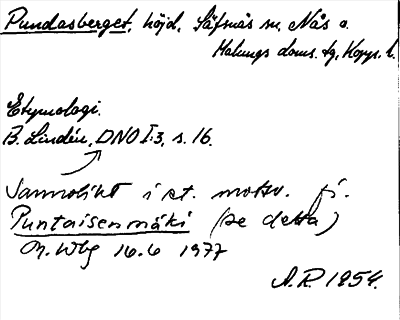 Pundasberget, höjd, Säfsnäs sn, Nås o.
Malungs doms. tg, Kopp. l.
Etymologi.
B. Lindén, DNO I:3, s. 16.
Sannolikt i st. motsv. fi.
Puntaisenmäki (se detta)
M. Wbg 16.6 1977
A.R. 1954.